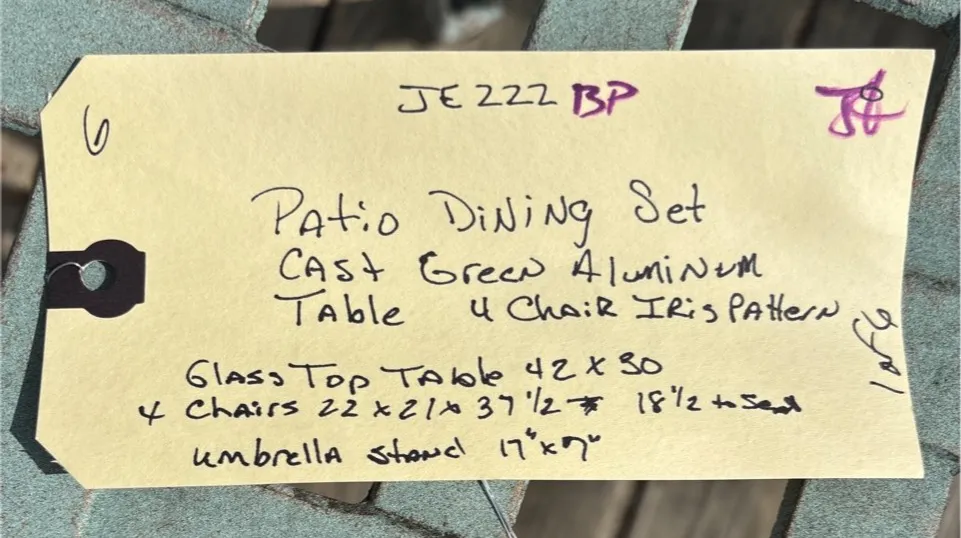 6
JE222 BP
Patio Dining Set
Cast Green Aluminum
Table 4 Chair Iris Pattern
1 of 6
Glass Top Table 42 x 30
4 Chairs 22 x 21 x 37 1/2 18 1/2 to Seat
umbrella stand 17" x 9"